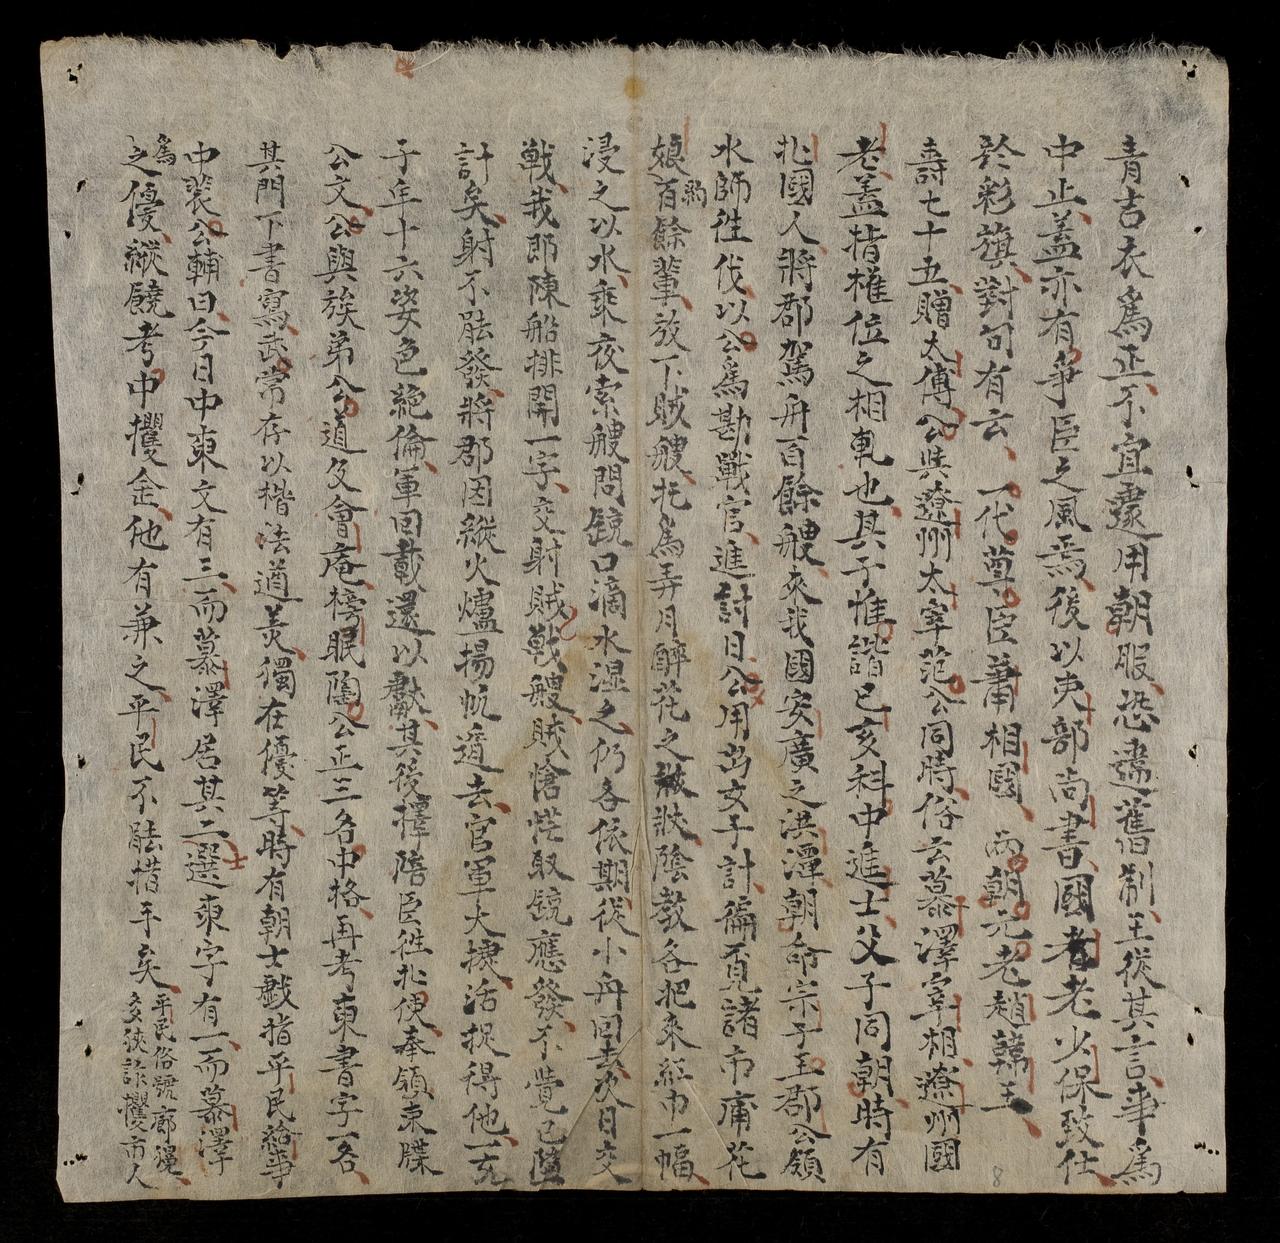 青吉衣爲正不宜遽用朝服恐違舊制王從其言事爲
中止蓋亦有爭臣之風焉後以吏部尚書國老少保致仕
於彩旗對句有云一代尊臣蕭相國兩朝元老趙韓王
壽七十五贈太傅公與遼州太宰范公同時俗云慕澤宰相遼州國
老蓋指權位之相軋也其子惟諧己亥科中進士父子同朝時有
北國人將郡駕舟百餘艘來我國安廣之洪潭朝命宗子王郡公領
水師徃伐以公爲勘戰官進討日公用出女子計徧覓諸市庸花
娘百餘輩放下賊艘托爲弄月醉花之 陰教各把朱紅巾一幅
浸之以水乘夜索艘問鏡口滴水湿之仍各依期從小舟回去次日交
戰我郎陳船排開一字交射賊戰艘賊愴茫取鏡應發不覺已墮
計矣射不能發將郡因縱火爐揚帆遁去官軍大捷活捉得他一
子年十六姿色絶倫軍回載還以獻其後擇陪臣徃北使奉領東牒
公文公與族弟公道及會庵榜眼陶公正三名中格再考東書字一各
其門下書寫 常存以楷法遒美獨在優等時有朝士戲指平民給事
中裴公輔曰今日中東文有三而慕澤居其二選東字有一而慕澤
爲之優縱饒考中攫金他有兼之平民不能措手矣
平民俗號廊
多狹詐攫市人
8